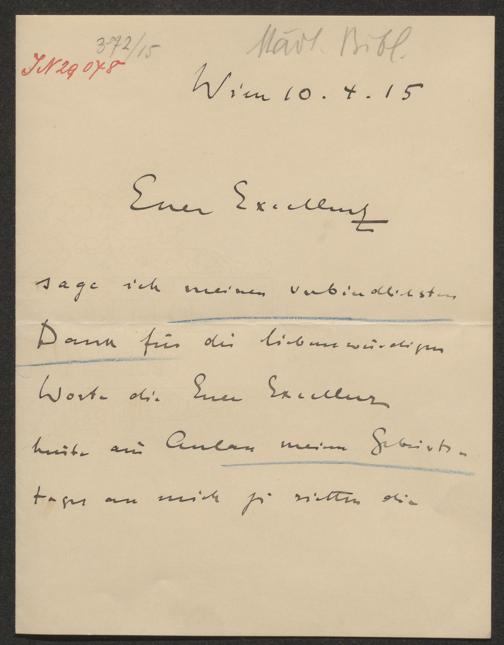 372/15
Städt. Bibl.
JN 29078
Wien 10. 4. 15
Euer Excellenz
sage ich meinen verbindlichsten
Dank für die liebenswürdigen
Worte die Euer Excellenz
heute aus Anlass meines Geburts-
tages an mich zu richten die